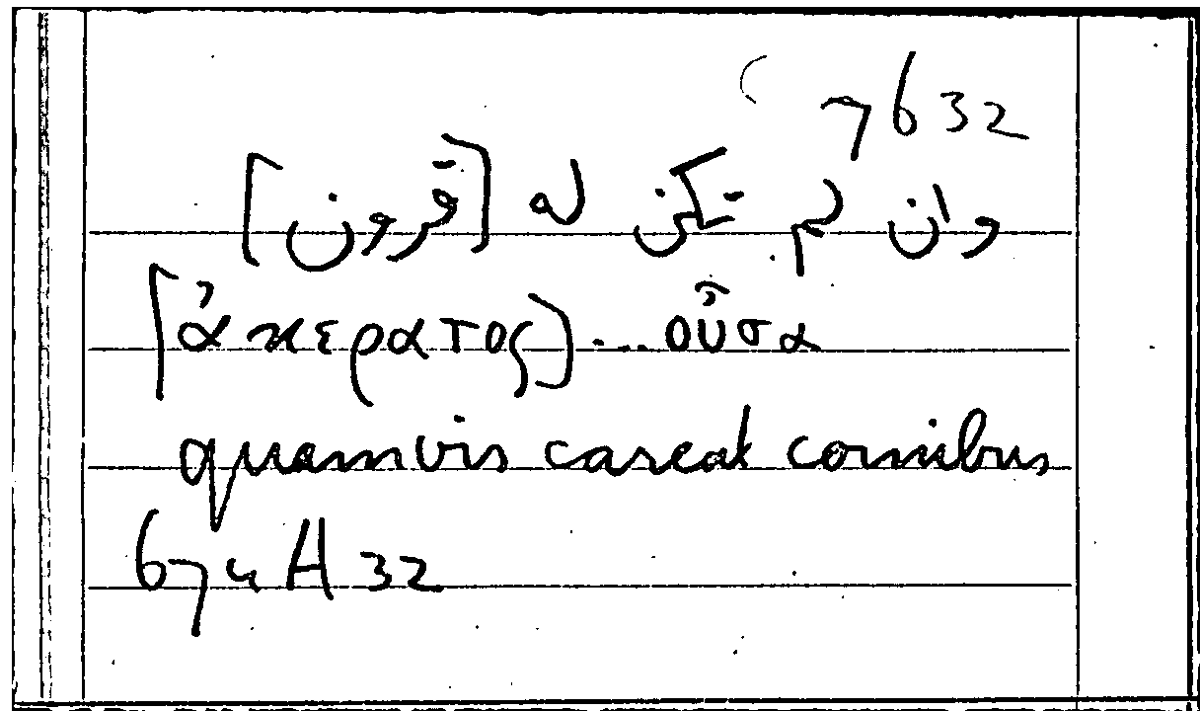 7632
وان لم تكن له [قرون]
[ἀκερατος] ... οὖσα
quamvis careat cornibus
674 A 32